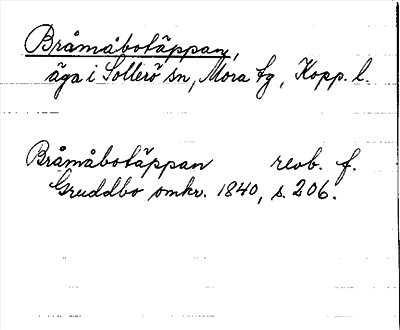 Bråmåbotäppan,
äga i Sollerö sn, Mora tg, Kopp. l.
Bråmåbotäppan reob. f.
Gruddbo omkr. 1840, s. 206.